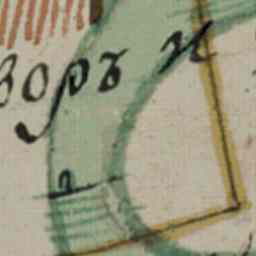 воръ и